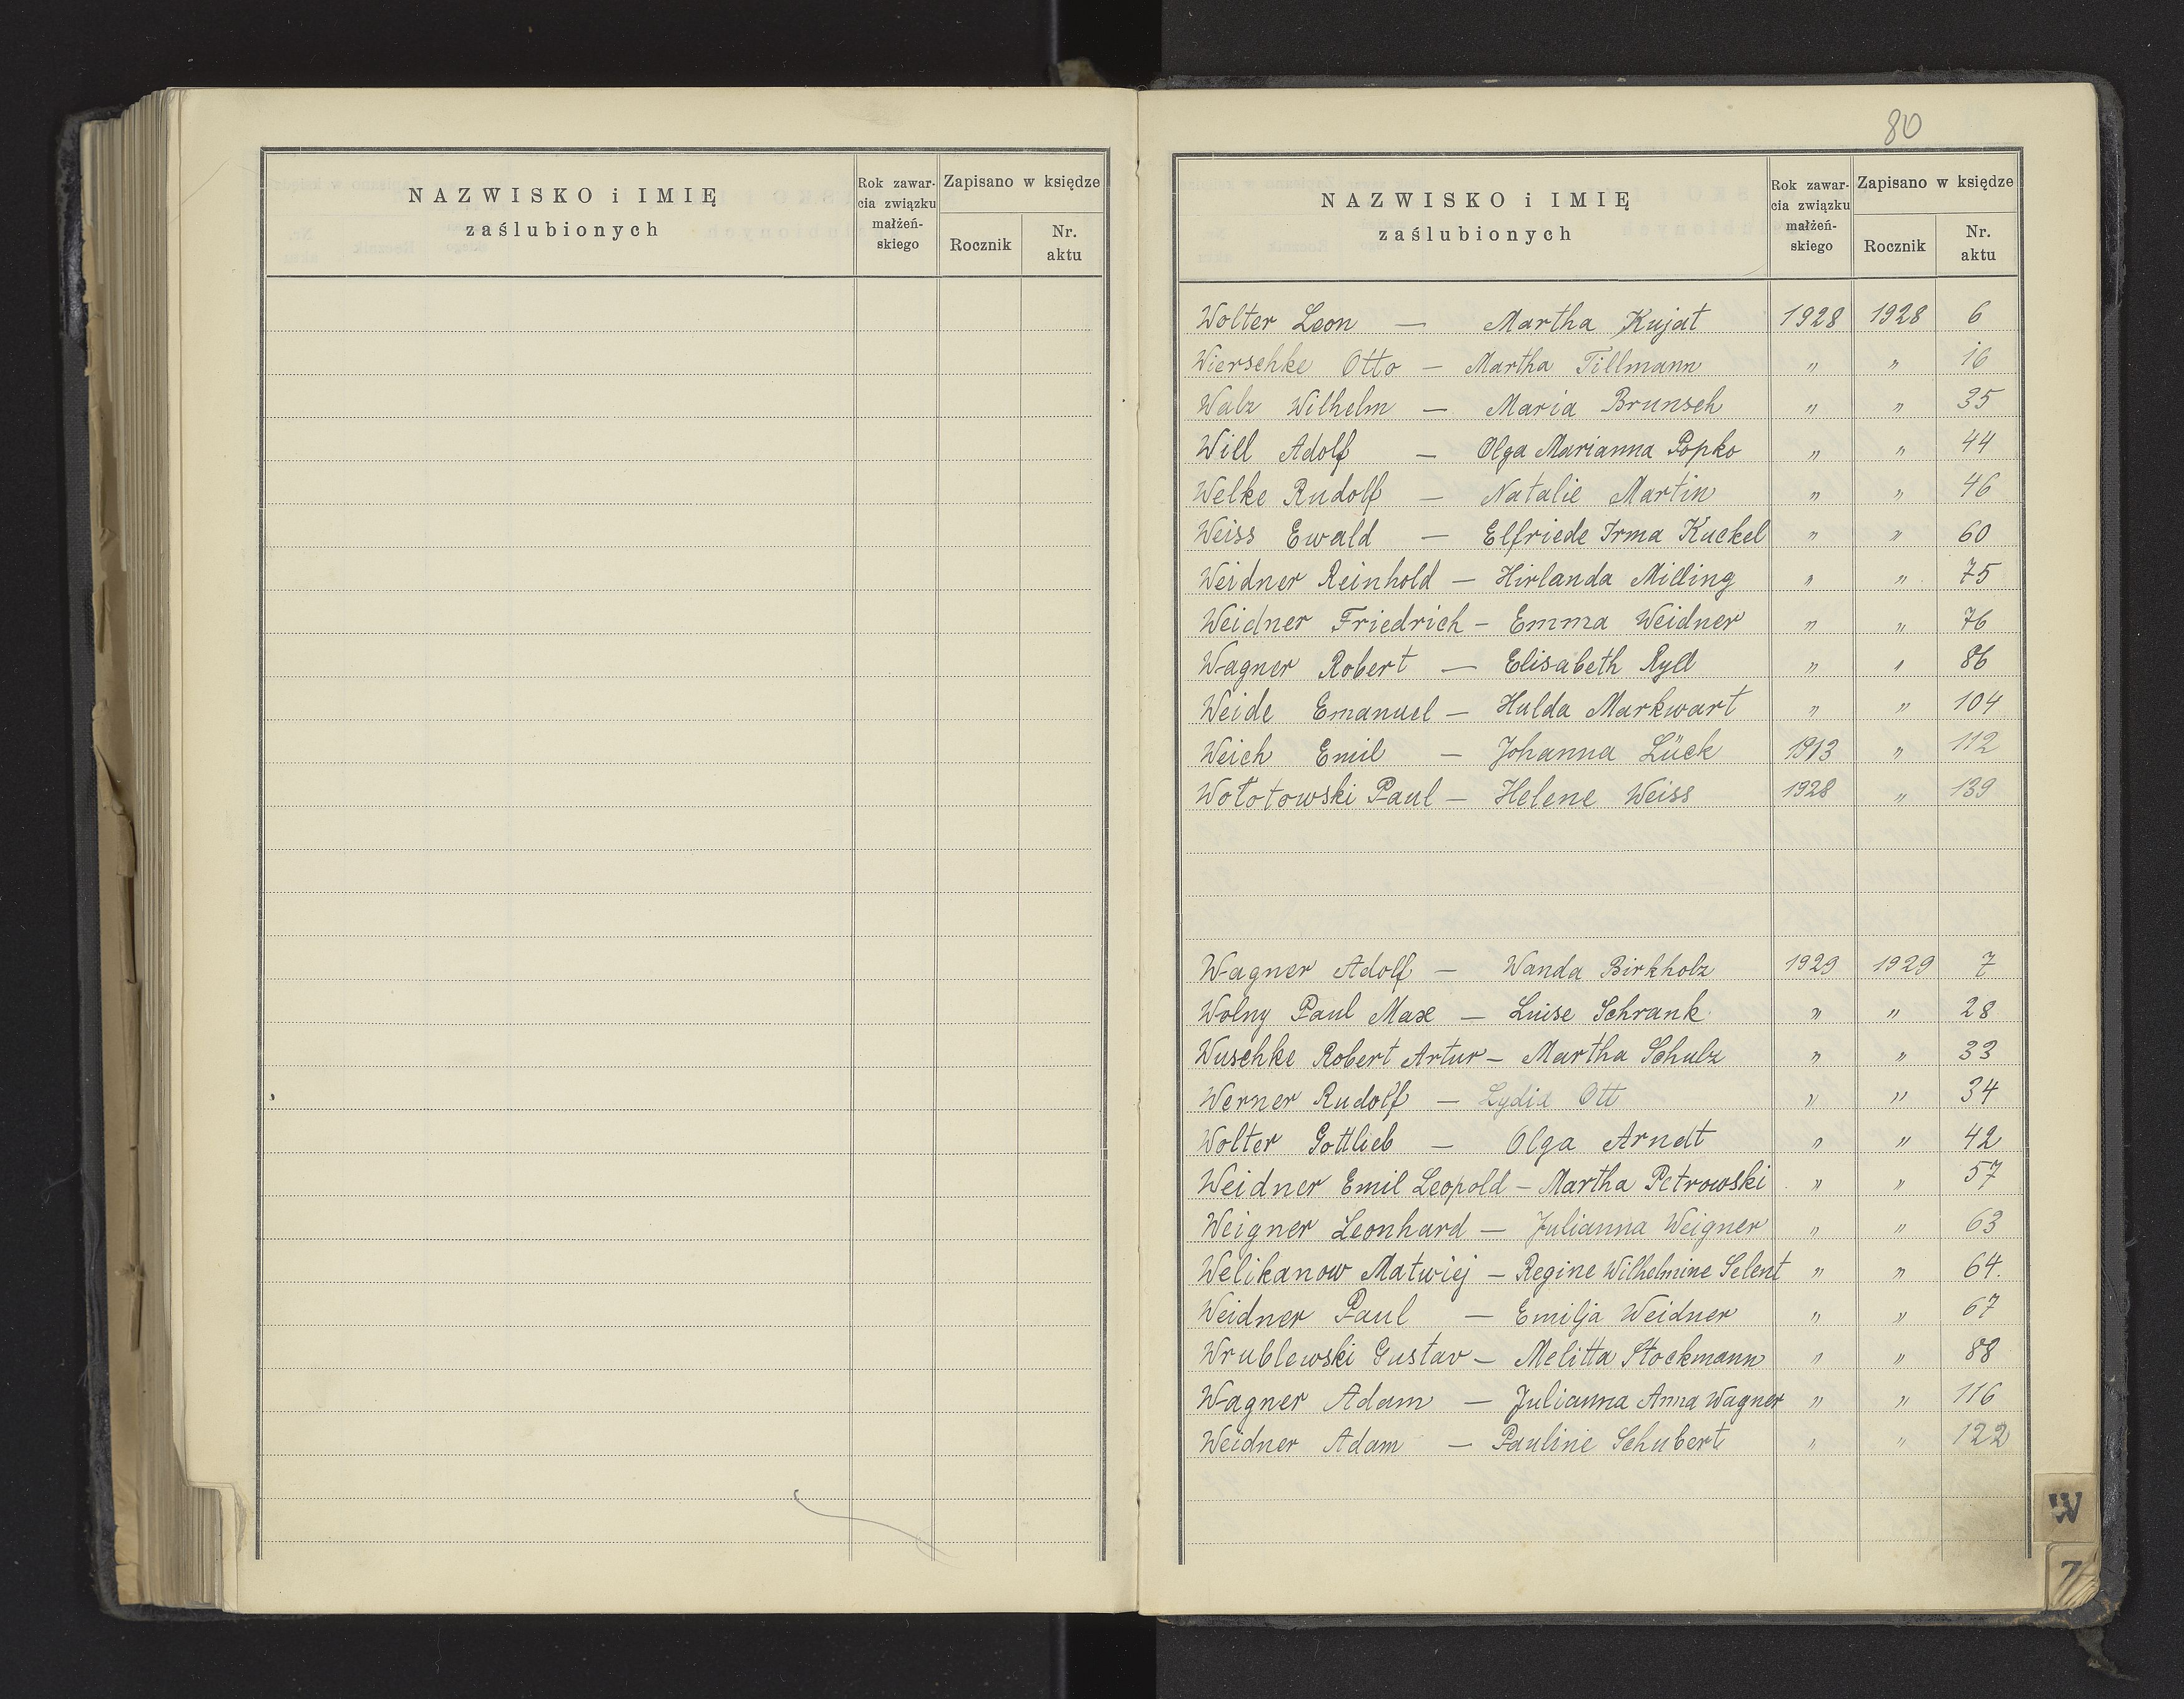 NAZWISKO i IMIĘ
zaślubionych
Rok zawar-
cia związku
małżeń-
skiego
Zapisano w księdze
Rocznik
Nr.
aktu
80
NAZWISKO i IMIĘ
zaślubionych
Rok zawar-
cia związku
małżeń-
skiego
Zapisano w księdze
Rocznik
Nr.
aktu
Wolter Leon — Martha Kujat 1928 1928 6
Wierschke Otto — Martha Tillmann " " 16
Walz Wilhelm — Maria Brunsch " " 35
Will Adolf — Olga Marianna Popko " " 44
Welke Rudolf — Natalie Martin " " 46
Weiss Ewald — Elfriede Irma Kuckel " " 60
Weidner Reinhold — Hirlanda Milling " " 75
Weidner Friedrich — Emma Weidner " " 76
Wagner Robert — Elisabeth Ryll " " 86
Weide Emanuel — Hulda Markwart " " 104
Weich Emil — Johanna Lück 1913 " 112
Wołotowski Paul — Helene Weiss 1928 " 139
Wagner Adolf — Wanda Birkholz 1929 1929 7
Wolny Paul Max — Luise Schrank " " 28
Wuschke Robert Artur — Martha Schulz " " 33
Werner Rudolf — Lydia Ott " " 34
Wolter Gottlieb — Olga Arndt " " 42
Weidner Emil Leopold — Martha Petrowski " " 57
Weigner Leonhard — Julianna Weigner " " 63
Welikanow Matwiej — Regine Wilhelmine Selent " " 64.
Weidner Paul — Emilja Weidner " " 67
Wrublewski Gustav — Melitta Stockmann " " 88
Wagner Adam — Julianna Anna Wagner " " 116
Weidner Adam — Pauline Schubert " " 122
W
Z